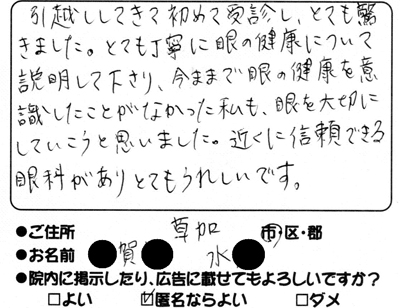 引越ししてきて初めて受診し、とても驚
きました。とても丁寧に眼の健康について
説明して下さり、今ままで眼の健康を意
識したことがなかった私も、眼を大切に
していこうと思いました。近くに信頼できる
眼科がありとてもうれしいです。
●ご住所 草加 市・区・郡
●お名前 賀 水
●院内に掲示したり、広告に載せてもよろしいですか?
□よい ☑匿名ならよい □ダメ